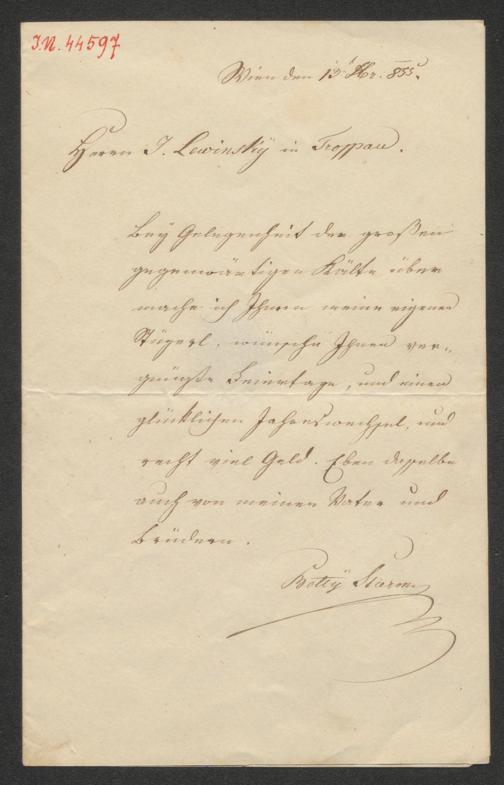 I.N. 44597
Wien den 13t Xbr. 855.
Herrn J. Lewinskÿ in Troppau.
Bey Gelegenheit der großen
gegenwärtigen Kälte über
mache ich Ihnen meine eigenen
wünsche Ihnen ver-
gnügte Feiertage, und einen
glücklichen Jahreswechsel, und
recht viel Geld. Eben dasselbe
auch von meinen Vater und
Brüdern.
Bettÿ